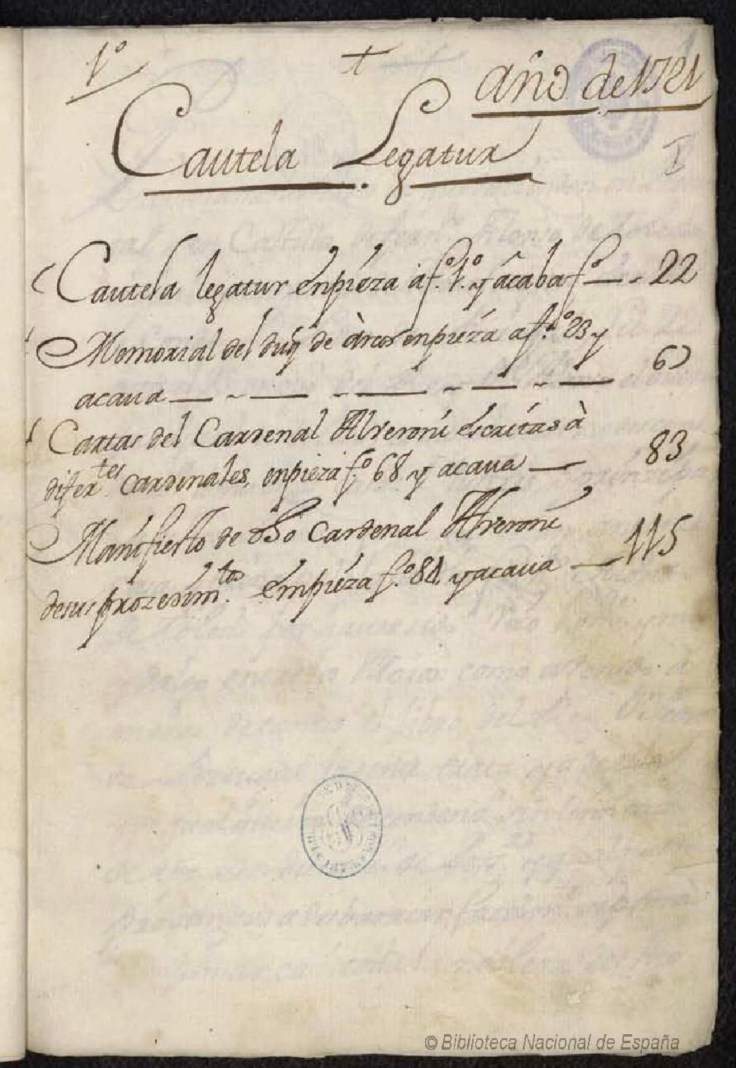 1º
+
año de 1721
Cautela Legatur
I
Cautela legatur enpieza a fº. 1º. y acaba fº 22
Memorial del duq de Arcos enpieza a fº. 23 y
acaua 67
Cartas del Cardenal Alveroni escritas à
difer.tes cardinales, enpieza fº 68 y acaua 83
Manifiesto de dho Cardenal Alveroni
de sus prozedim.tos empieza fº 84 y acaua 115
© Biblioteca Nacional de España